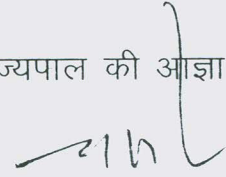 ज्यपाल की आज्ञा